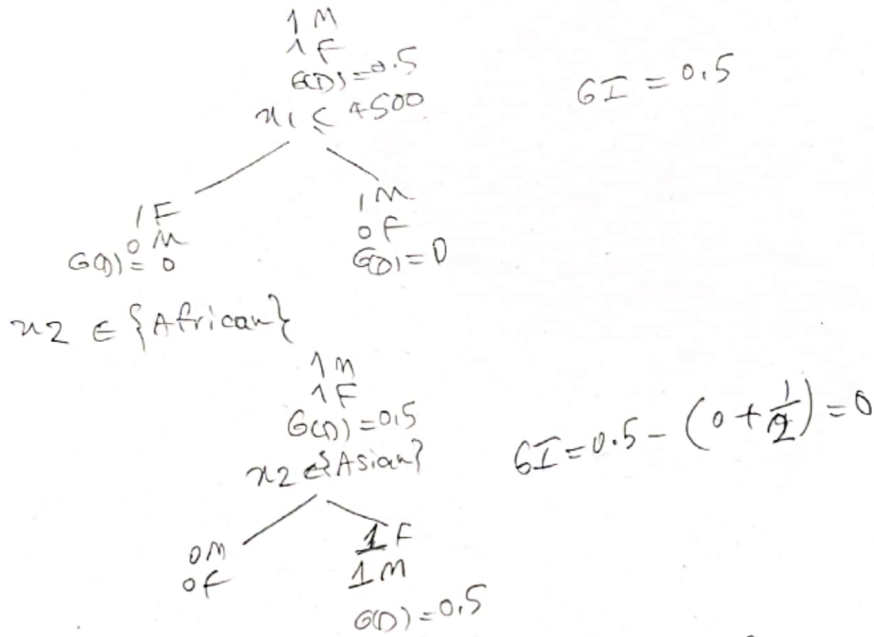 1M
1F
G(D)=0.5
x1 < 4500
GI = 0.5
1F
0M
G(D)=0
1M
0F
G(D)=0
x2 ∈ {African}
1M
1F
G(D)=0.5
x2 ∈ {Asian}
GI=0.5-(0+1/2)=0
0M
0F
1F
1M
G(D)=0.5